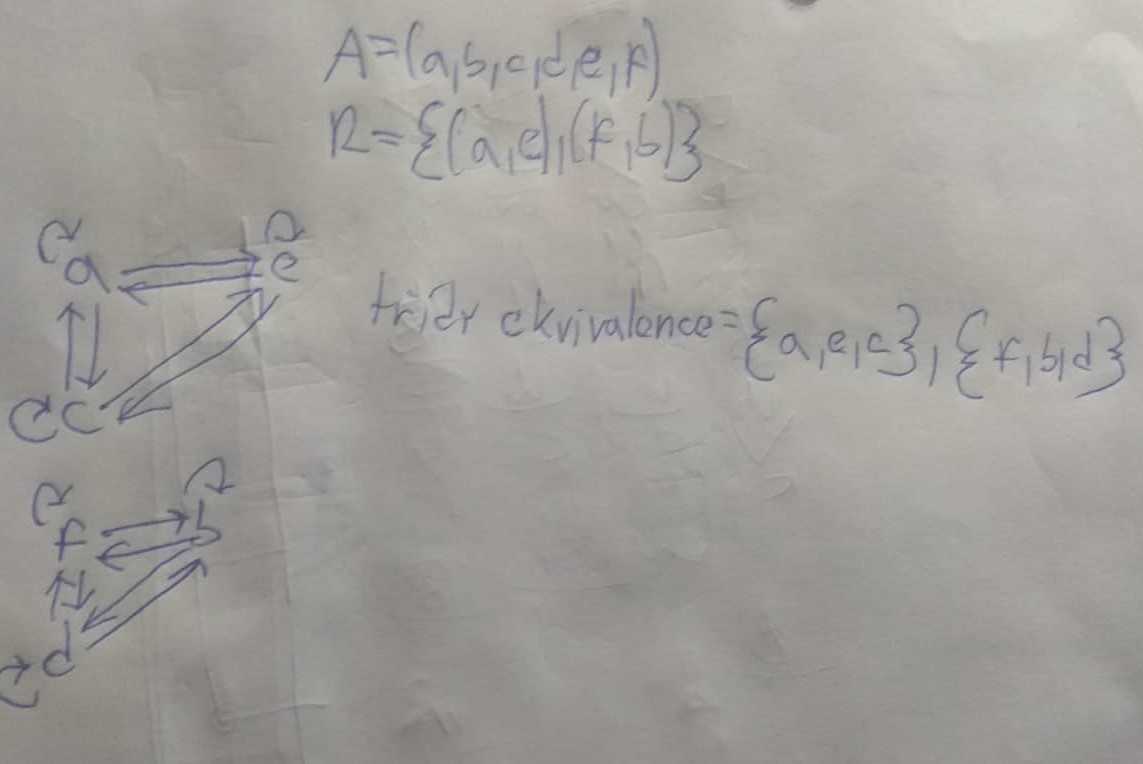 A=(a,b,c,d,e,f)
R={(a,e),(f,b)}
a e
c
třídy ekvivalence={a,e,c},{f,b,d}
f b
d